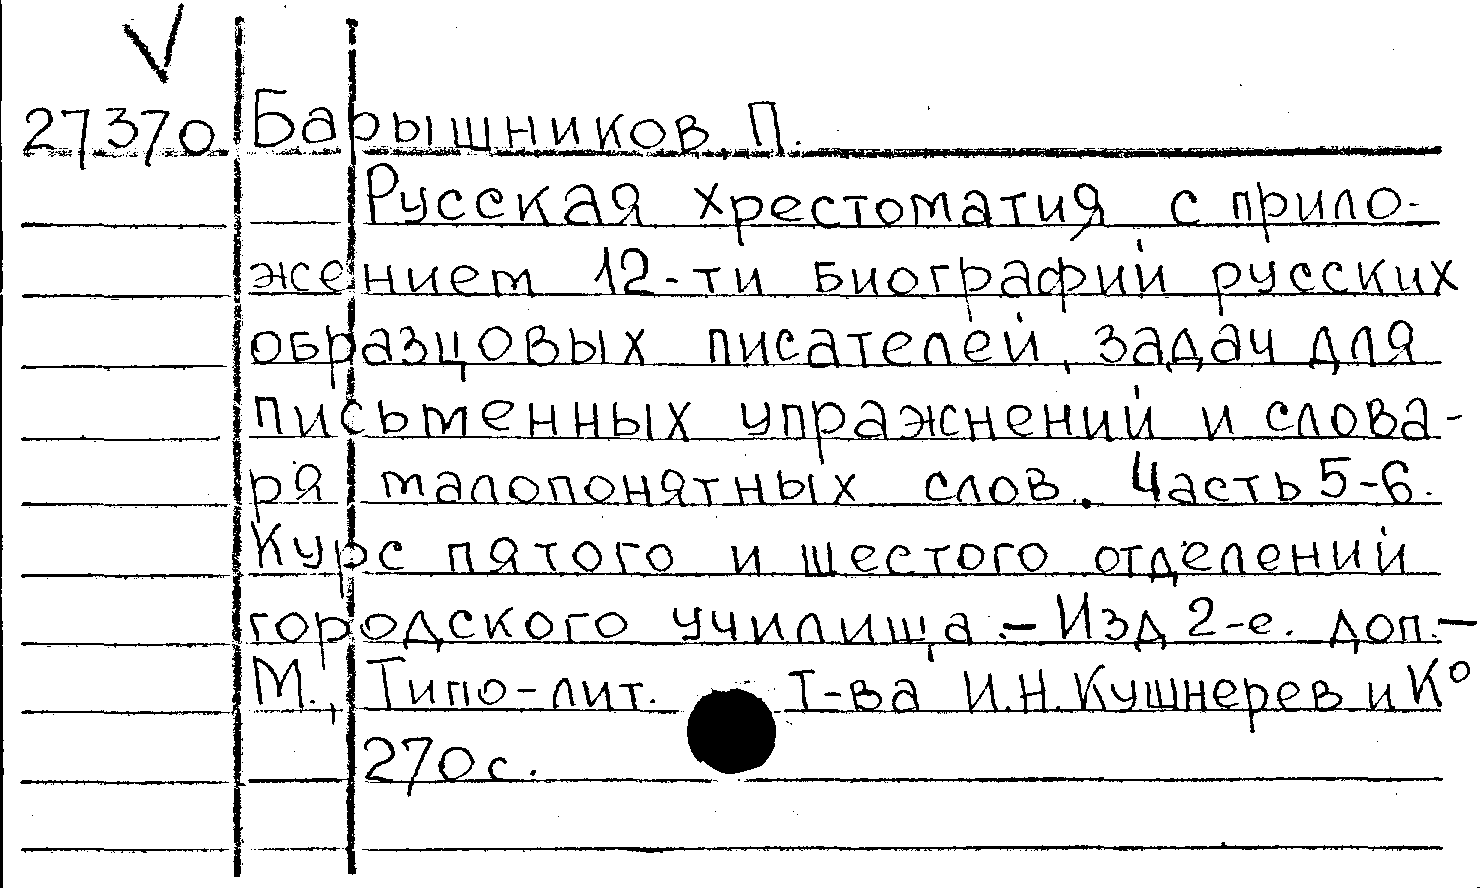 V
27370 Барышников П.
Русская хрестоматия с прило-
жением 12-ти биографий русских
образцовых писателей, задач для
письменных упражнений и слова-
ря малопонятных слов. Часть 5-6.
Курс пятого и шестого отделений
городского училища.- Изд 2-е. доп.-
М., Типо-лит. Т-ва И.Н.Кушнерев и К°
270с.